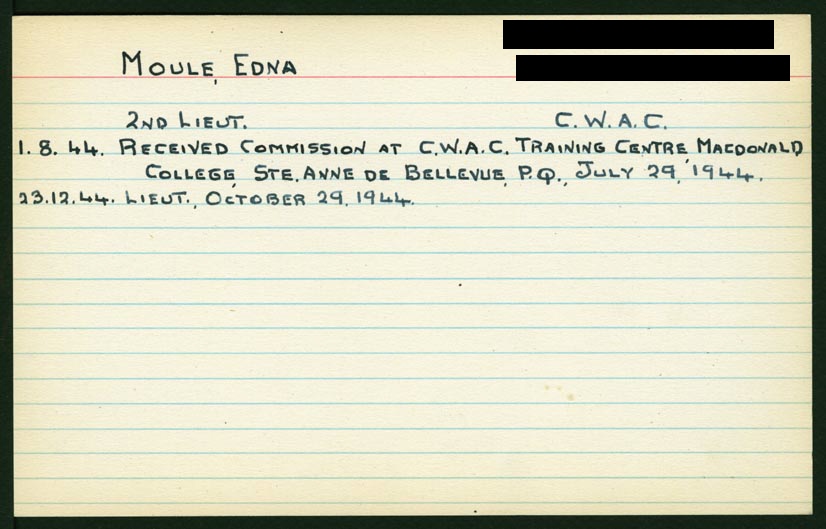 MOULE, EDNA
2ND LIEUT. C. W. A. C.
1. 8. 44. RECEIVED COMMISSION AT C.W.A.C. TRAINING CENTRE, MACDONALD
COLLEGE, STE. ANNE DE BELLEVUE, P.Q., JULY 29, 1944.
23.12.44. LIEUT., OCTOBER 29, 1944.